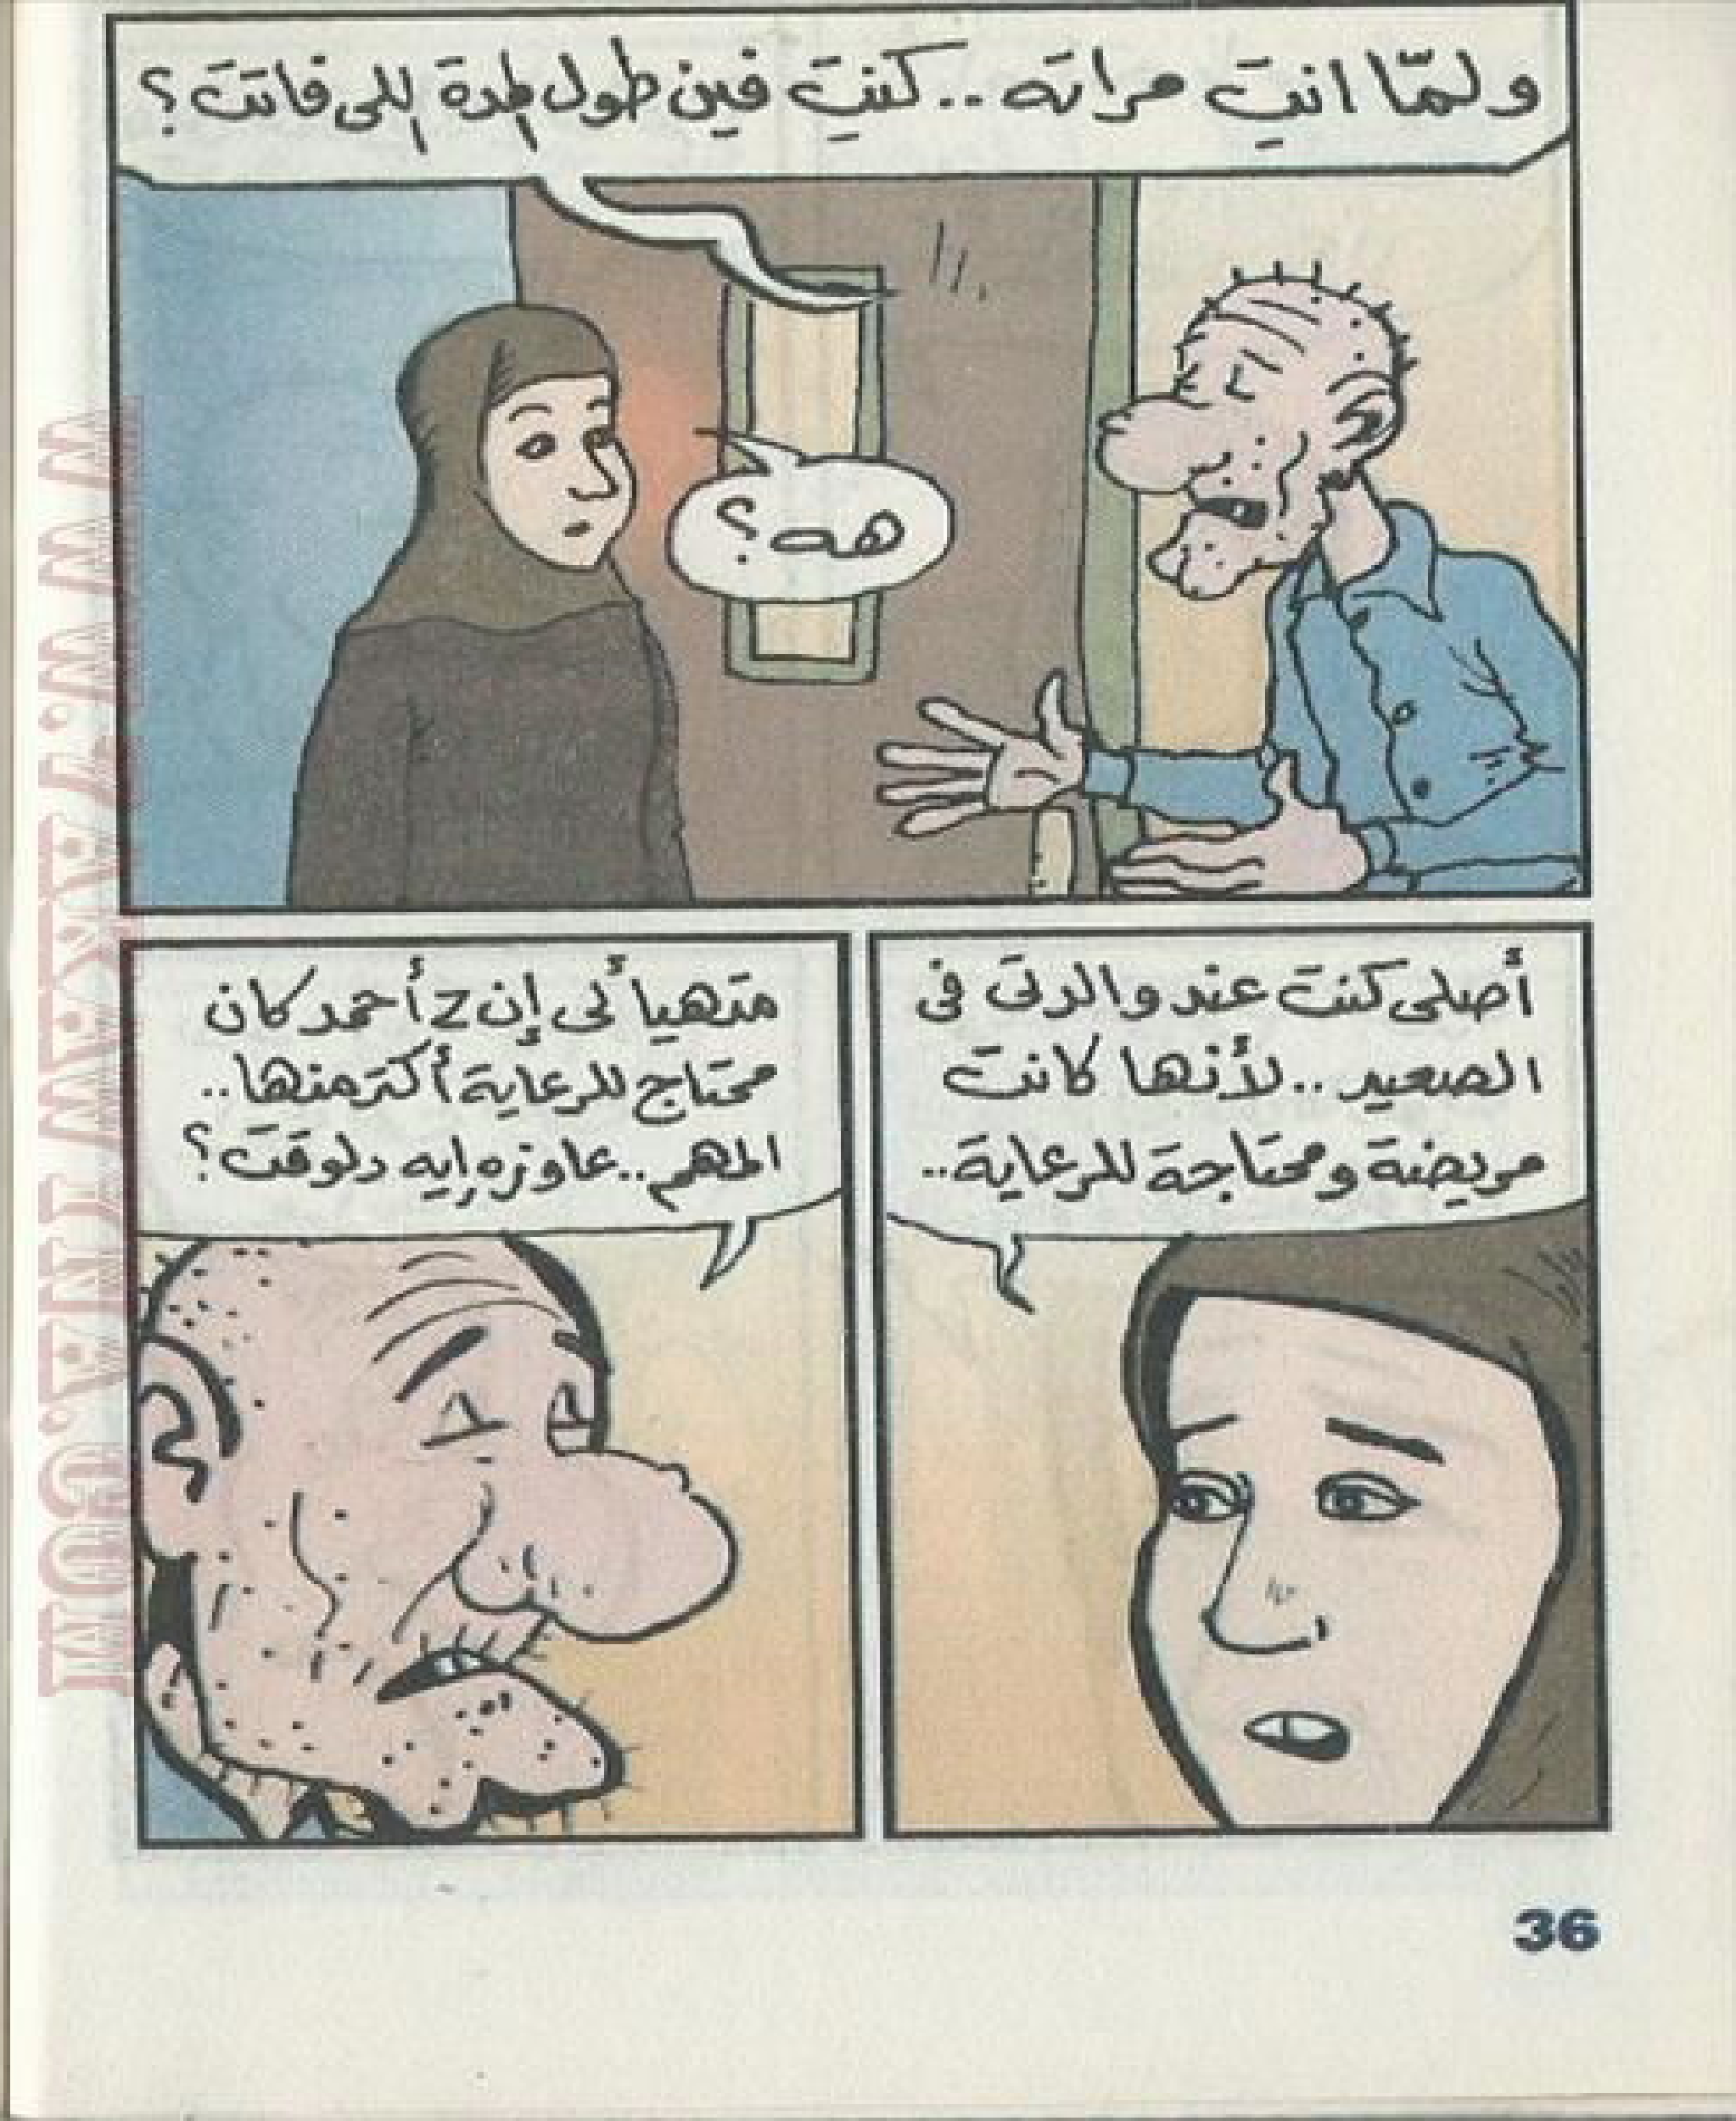 ولمّا انتِ مراته .. كنتِ فين طول المدة اللى فاتت ؟
هه ؟
أصلى كنت عند والدتى فى
الصعيد .. لأنها كانت
مريضة ومحتاجة للرعاية ..
متهيأ لى إن أحمد كان
محتاج للرعاية أكتر منها ..
المهم .. عاوزه إيه دلوقت ؟
36